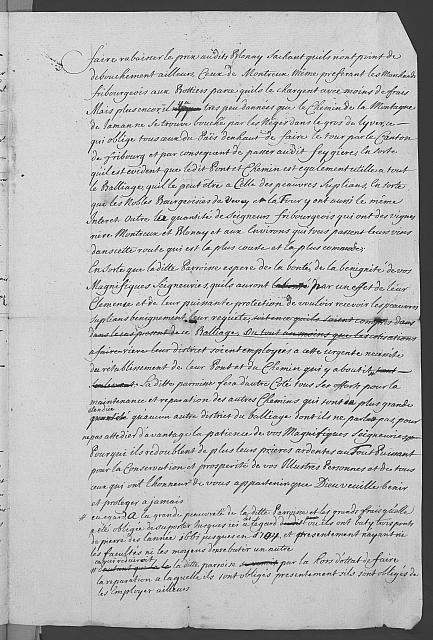 faire rabaisser le prix audits Blonay sachant quils n'ont point de
debouchement ailleurs, Ceux de Montreux même preferant les Marchands
fribourgeois aux Bottiers parce quils le chargent avec moins de frais
Mais plus encor il tres peu dannées que le Chemin de la Montagne
de Jamanne se trouve bouché par les Neges dans le gros de lyver ce
qui oblige tous ceux du Païs denhaut de faire le tour par le Canton
de fribourg et par consequent de passer audit fey giere, la sorte
quil est evident que ledit Pont et Chemin est egalement utille a tout
le Balliage, quil le peut etre a Celle des peauvres Suplians, la sorte
que les Nobles Bourgeoisies de Vevey et la Tour y ont aussi le même
Interet. Outre la quantité de Seigneurs fribourgeois qui ont des vignes
riere Montreux et Blonay et aux Environs qui tous passent leurs vins
dans cette route qui est la plus courte et la plus commode;
En sorte que laditte Parroisse espere de la bonté, de la benignité de vos
Magnifiques Seigneuries, quils auront par un effet de leur
Clemence et de leur puissante protection de vouloir recevoir les peauvres
suplians benignement, leur requete, soit en ce quils soient compris dans
dans le cas present de ce Balliage. Du tout au moins que les cotisations
a faire riere leur district soient employées a cette urgente necessité
du retablissement de leur Pont et du Chemin qui y aboutit
La ditte parroisse fera d'autre Coté tous ses efforts pour la
maintenance et reparation des autres Chemins qui sont en plus grande
etendue
quantité quaucun autre district du balleage dont ils ne parle pas, pour
ne pas attedier d'avantage la patience de vos Magnifiques Seigneuries
Pourquoi ils redoublent de plus leurs prieres ardentes au Tout Puissant
pour la Conservation et prosperité de vos Illustres Personnes et de tous
ceux qui ont lhonneur de vous appartenir que Dieu veuille benir
et proteger a jamais
# en egard a la grande peauvreté de la ditte Parroisse et les grands frais quelle
a été obligée de suporter jusques ici a légard ou ils ont baty trois ponts
de pierre des lannée 1661 jusques en 1704 et presentement nayant ni
les facultés ni les moyens d'en rebatir un autre
ce qui reduiroit
la ditte parroisse par la hors d'ettat de faire
la reparation a laquelle ils sont obligés presentement sils sont obligés de
les Employer ailleurs